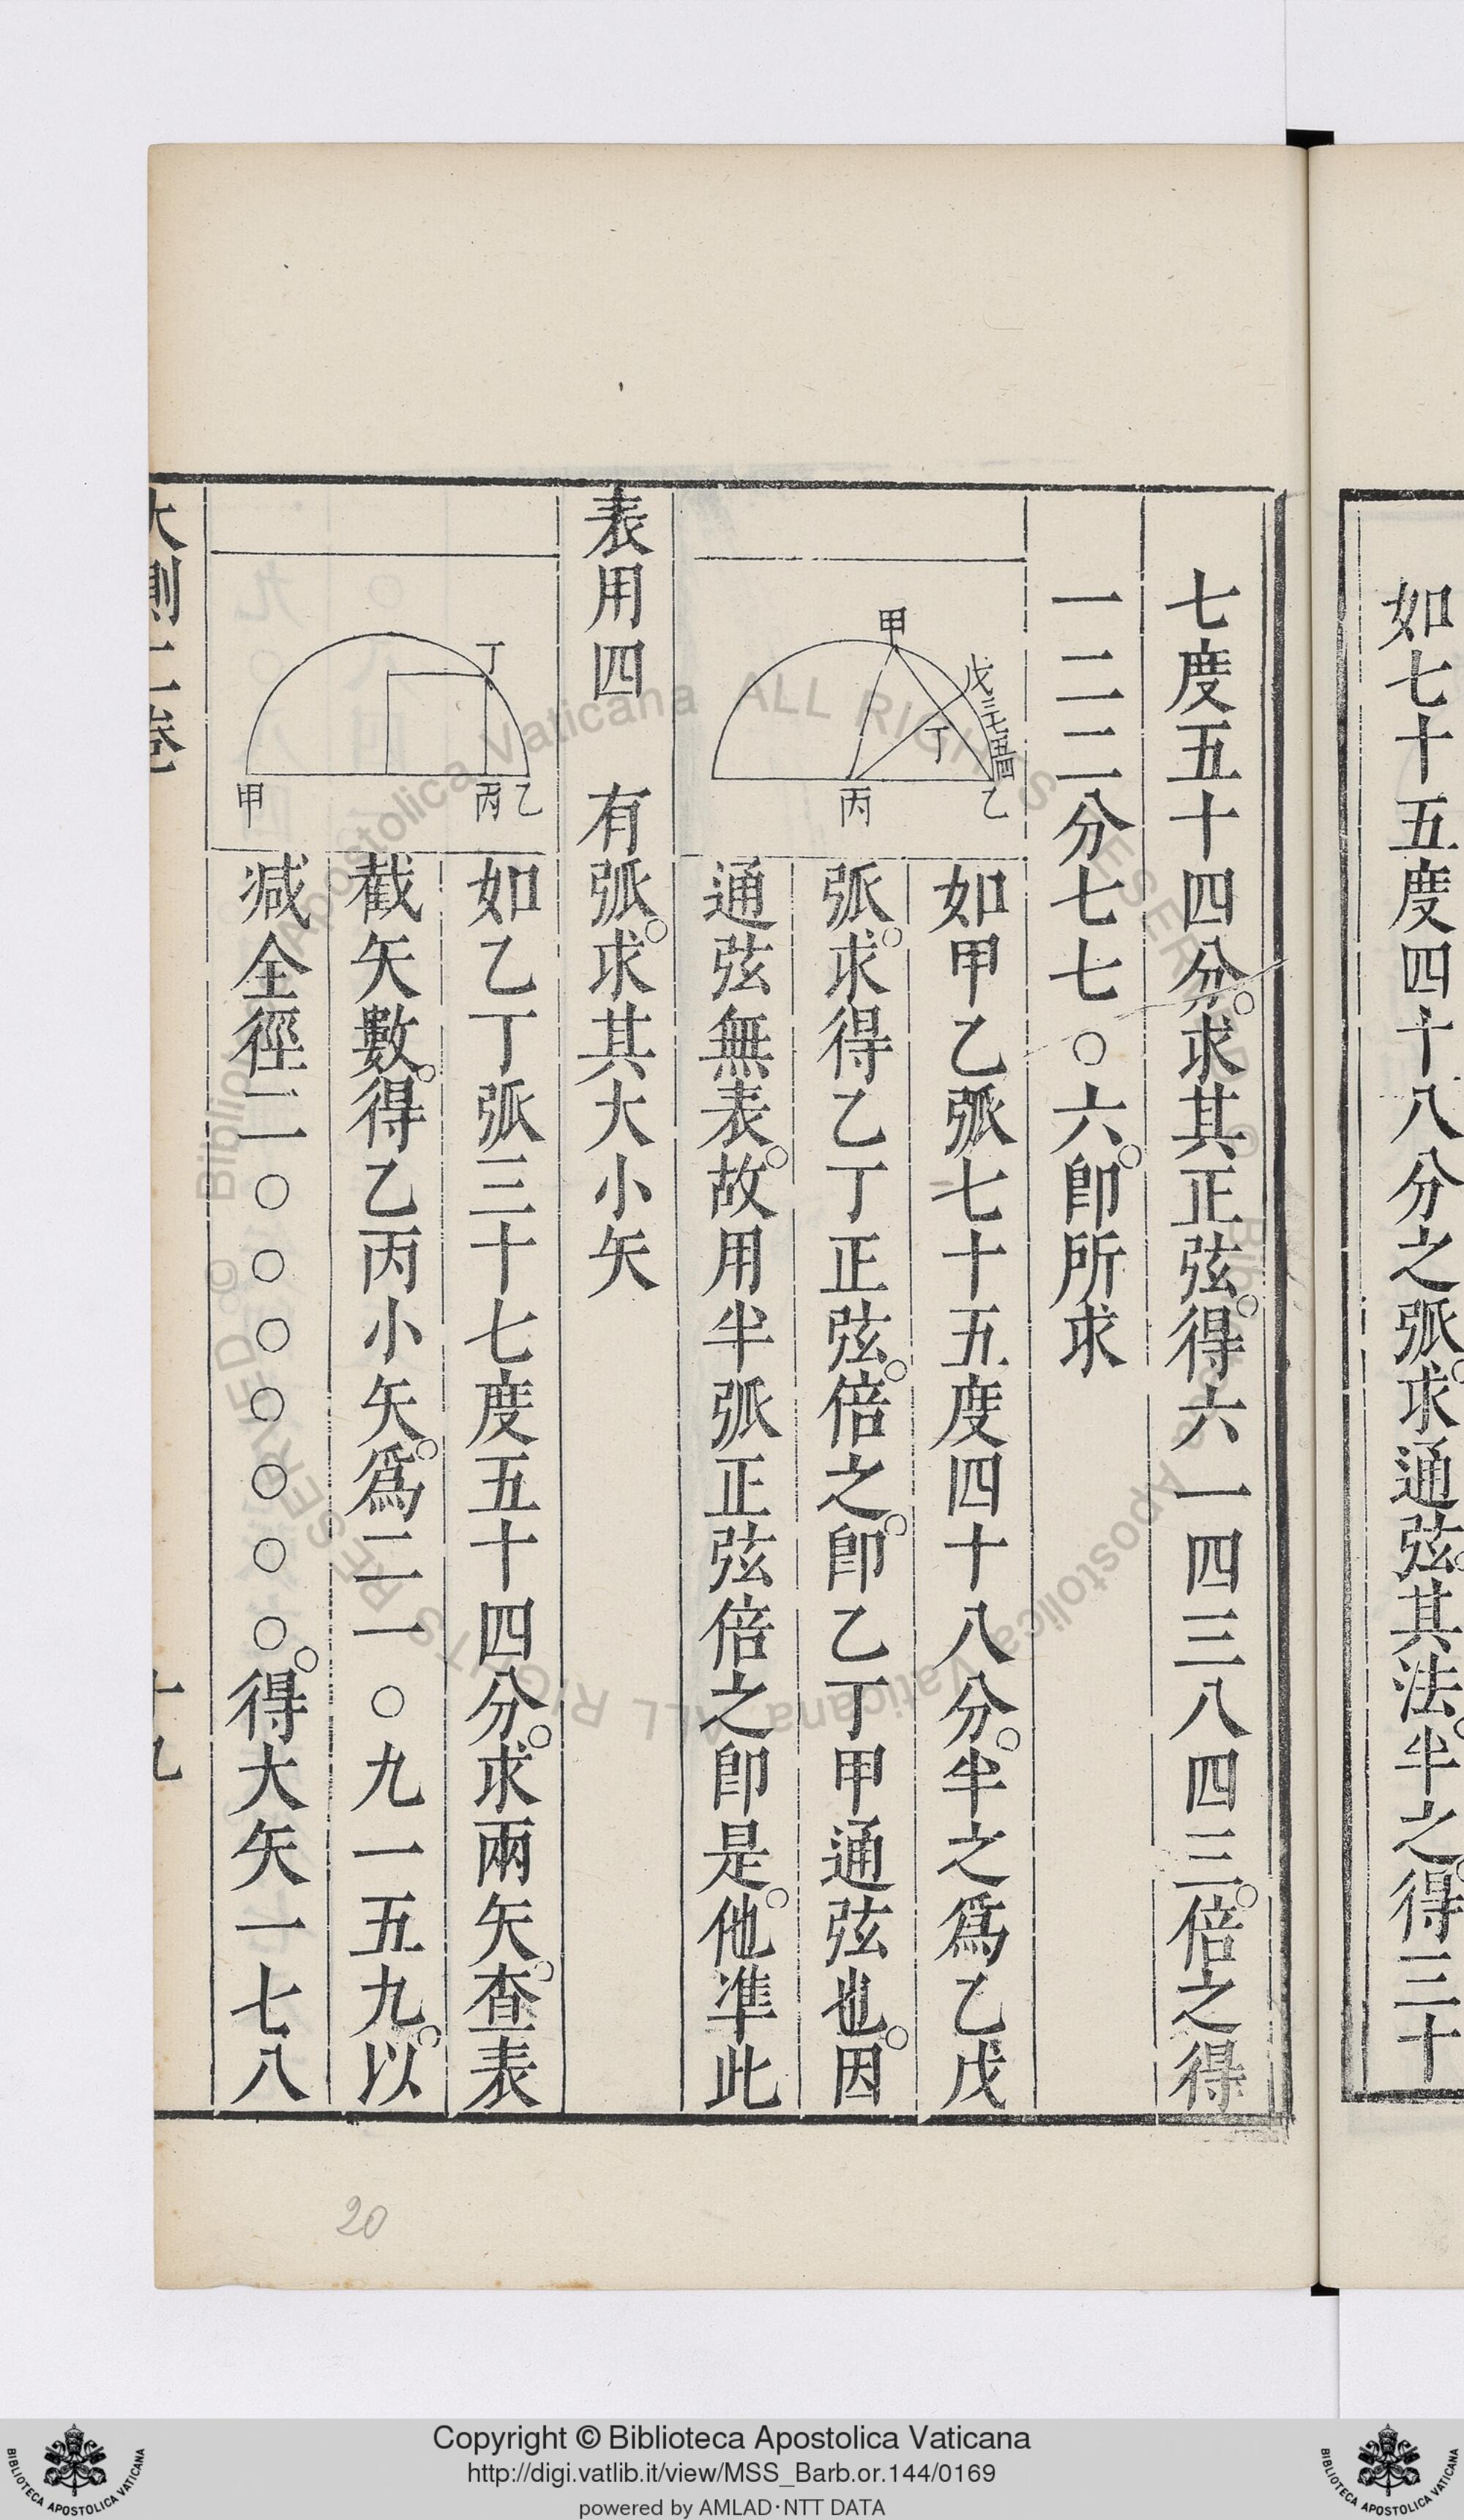 如七十五度四十八分之弧。求通弦。其法。半之。得三十
七度五十四分。求其正弦。得六一四三八四三。倍之得
一二二分七七〇六。卽所求
甲
戊
丁
丙
乙
如甲乙弧七十五度四十八分。半之爲乙戊
弧。求得乙丁正弦。倍之。卽乙丁甲通弦也。因
通弦無表。故用半弧正弦倍之卽是。他凖此
表用四 有弧。求其大小矢
丁
甲
丙
乙
如乙丁弧三十七度五十四分。求兩矢。查表
截矢數。得乙丙小矢。爲二一〇九一五九。以
减全徑二〇〇〇〇〇〇〇。得大矢一七八
大測二卷
十九
20
Copyright © Biblioteca Apostolica Vaticana
http://digi.vatlib.it/view/MSS_Barb.or.144/0169
powered by AMLAD·NTT DATA